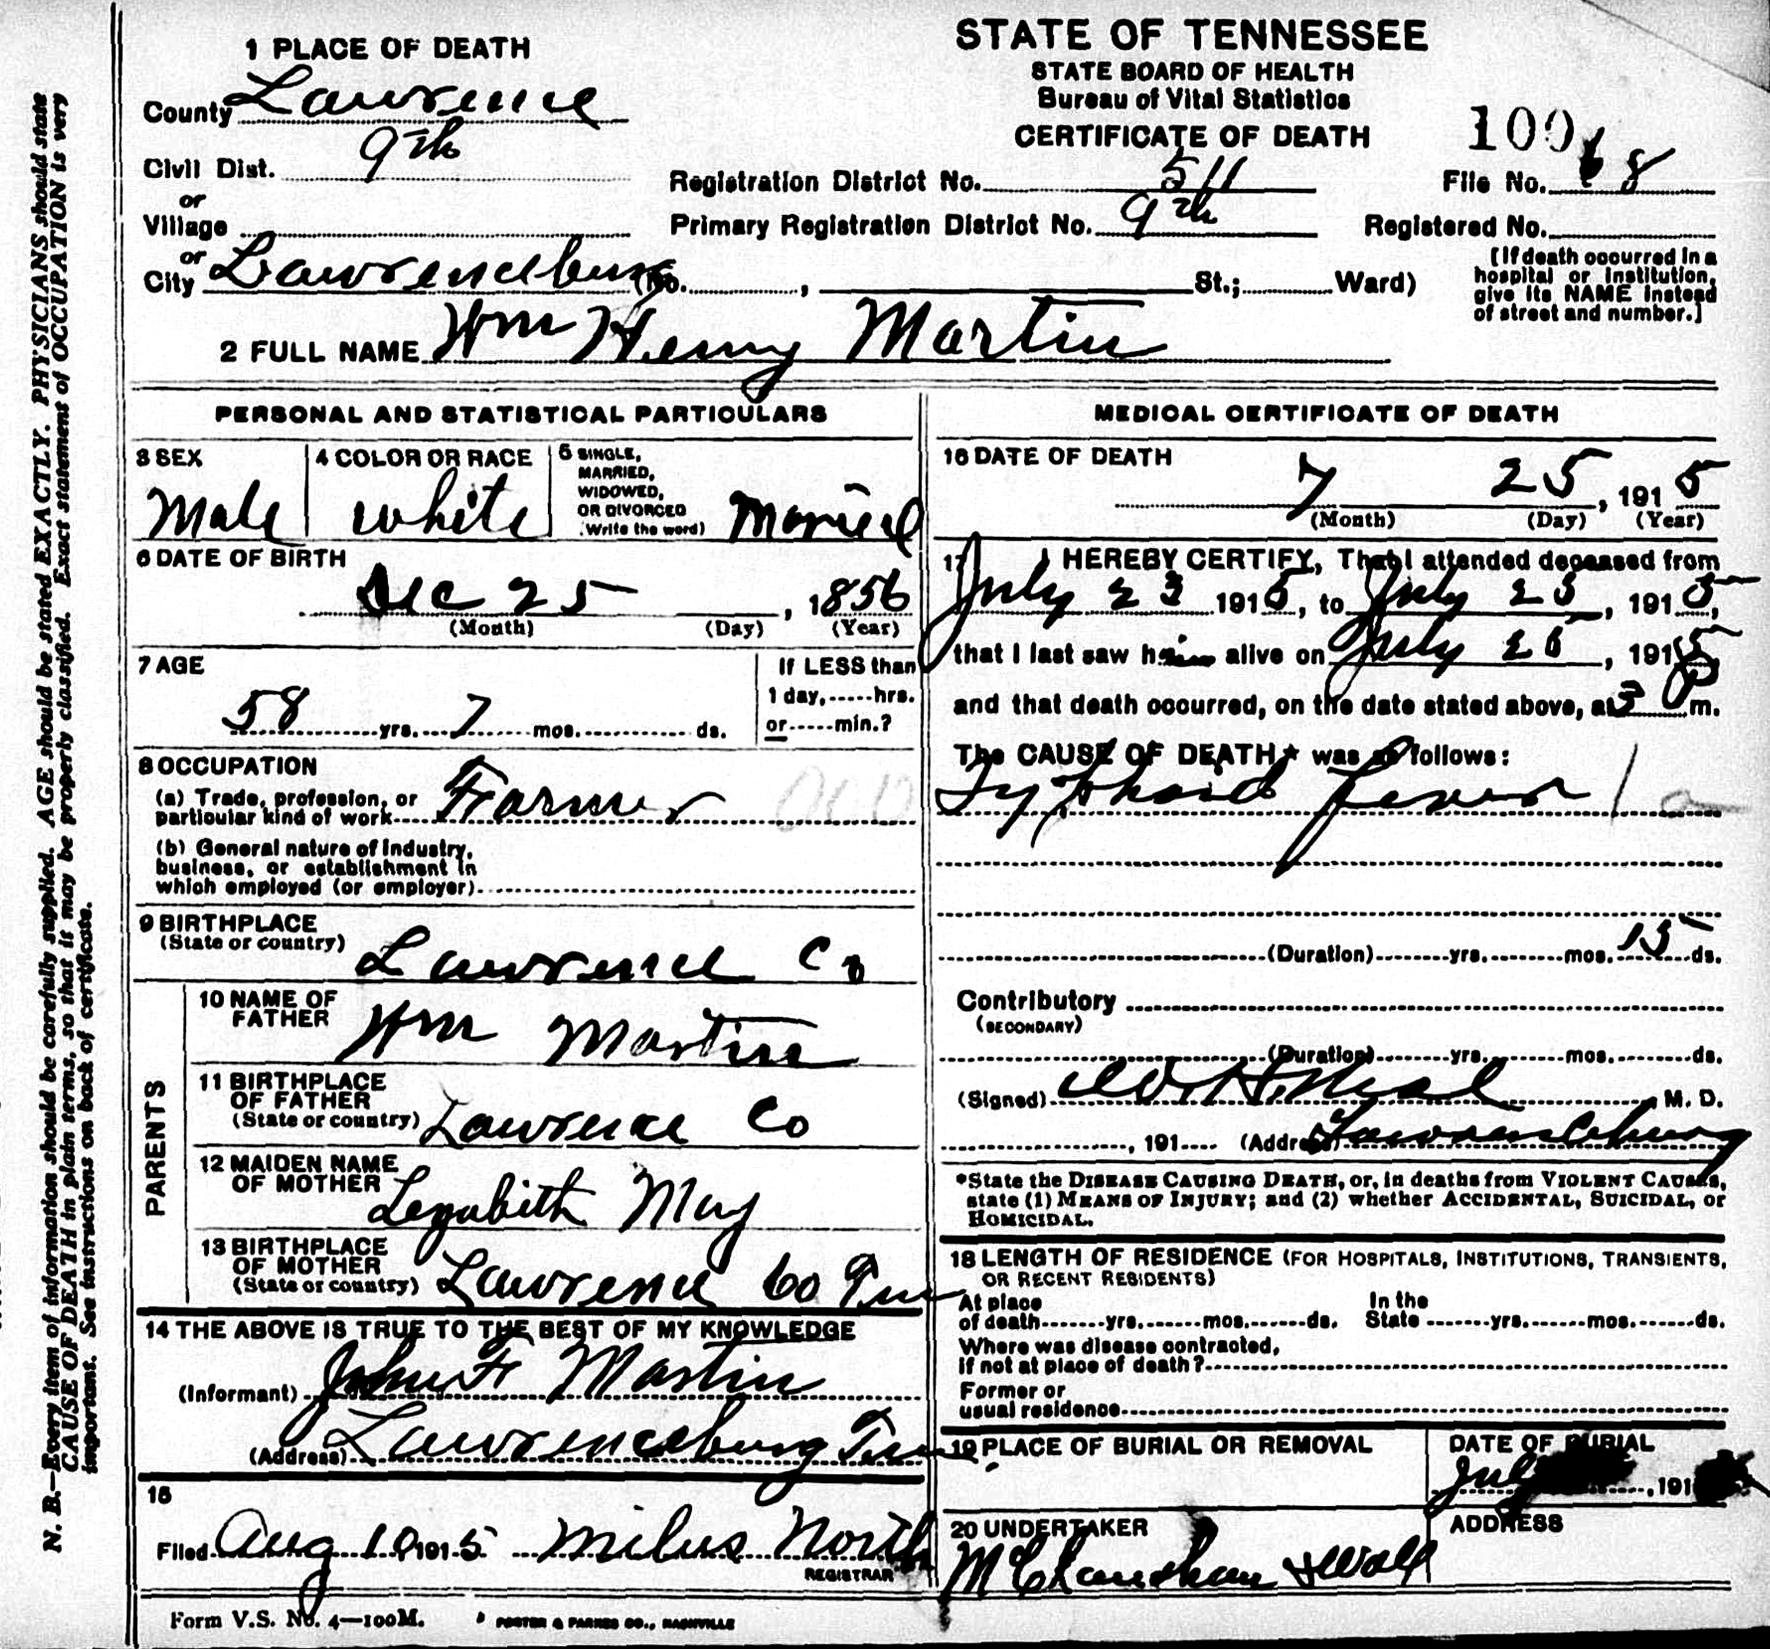 1 PLACE OF DEATH
County Lawrence
Civil Dist. 9th
or
Village
or
City Lawrenceburg (No. , St.; Ward)
STATE OF TENNESSEE
STATE BOARD OF HEALTH
Bureau of Vital Statistics
CERTIFICATE OF DEATH
100
Registration District No. 511
File No. 8
Primary Registration District No. 9th
Registered No.
[If death occurred in a
hospital or institution,
give its NAME instead
of street and number.]
2 FULL NAME Wm Henry Martin
PERSONAL AND STATISTICAL PARTICULARS
3 SEX
Male
4 COLOR OR RACE
White
5 SINGLE,
MARRIED,
WIDOWED,
OR DIVORCED
(Write the word) Married
6 DATE OF BIRTH
Dec 25, 1856
(Month) (Day) (Year)
7 AGE
58 yrs. 7 mos. ds.
If LESS than
1 day, hrs.
or min.?
8 OCCUPATION
(a) Trade, profession, or
particular kind of work Farmer
(b) General nature of industry,
business, or establishment in
which employed (or employer)
9 BIRTHPLACE
(State or country) Lawrence Co
PARENTS
10 NAME OF
FATHER Wm Martin
11 BIRTHPLACE
OF FATHER
(State or country) Lawrence Co
12 MAIDEN NAME
OF MOTHER Lezabith May
13 BIRTHPLACE
OF MOTHER
(State or country) Lawrence Co Tenn
14 THE ABOVE IS TRUE TO THE BEST OF MY KNOWLEDGE
(Informant) John F Martin
(Address) Lawrenceburg Tenn
15
Filed Aug 10, 1915 Milus North
REGISTRAR
MEDICAL CERTIFICATE OF DEATH
16 DATE OF DEATH
7 25, 1915
(Month) (Day) (Year)
17 I HEREBY CERTIFY, That I attended deceased from
July 23 1915, to July 25, 1915,
that I last saw him alive on July 25, 1915,
and that death occurred, on the date stated above, at 3 P m.
The CAUSE OF DEATH* was as follows:
Typhoid Fever 1 a
(Duration) yrs. mos. 15 ds.
Contributory
(SECONDARY)
(Duration) yrs. mos. ds.
(Signed) W. H. Neal M. D.
, 191 (Address) Lawrenceburg
*State the DISEASE CAUSING DEATH, or, in deaths from VIOLENT CAUSES,
state (1) MEANS OF INJURY; and (2) whether ACCIDENTAL, SUICIDAL, or
HOMICIDAL.
18 LENGTH OF RESIDENCE (FOR HOSPITALS, INSTITUTIONS, TRANSIENTS,
OR RECENT RESIDENTS)
At place
of death yrs. mos. ds.
In the
State yrs. mos. ds.
Where was disease contracted,
if not at place of death?
Former or
usual residence
19 PLACE OF BURIAL OR REMOVAL
DATE OF BURIAL
July , 191
20 UNDERTAKER
ADDRESS
Form V.S. No. 4—100M.
FOSTER & PARKES CO., NASHVILLE
N. B.—Every item of information should be carefully supplied. AGE should be stated EXACTLY. PHYSICIANS should state
CAUSE OF DEATH in plain terms, so that it may be properly classified. Exact statement of OCCUPATION is very
important. See instructions on back of certificate.